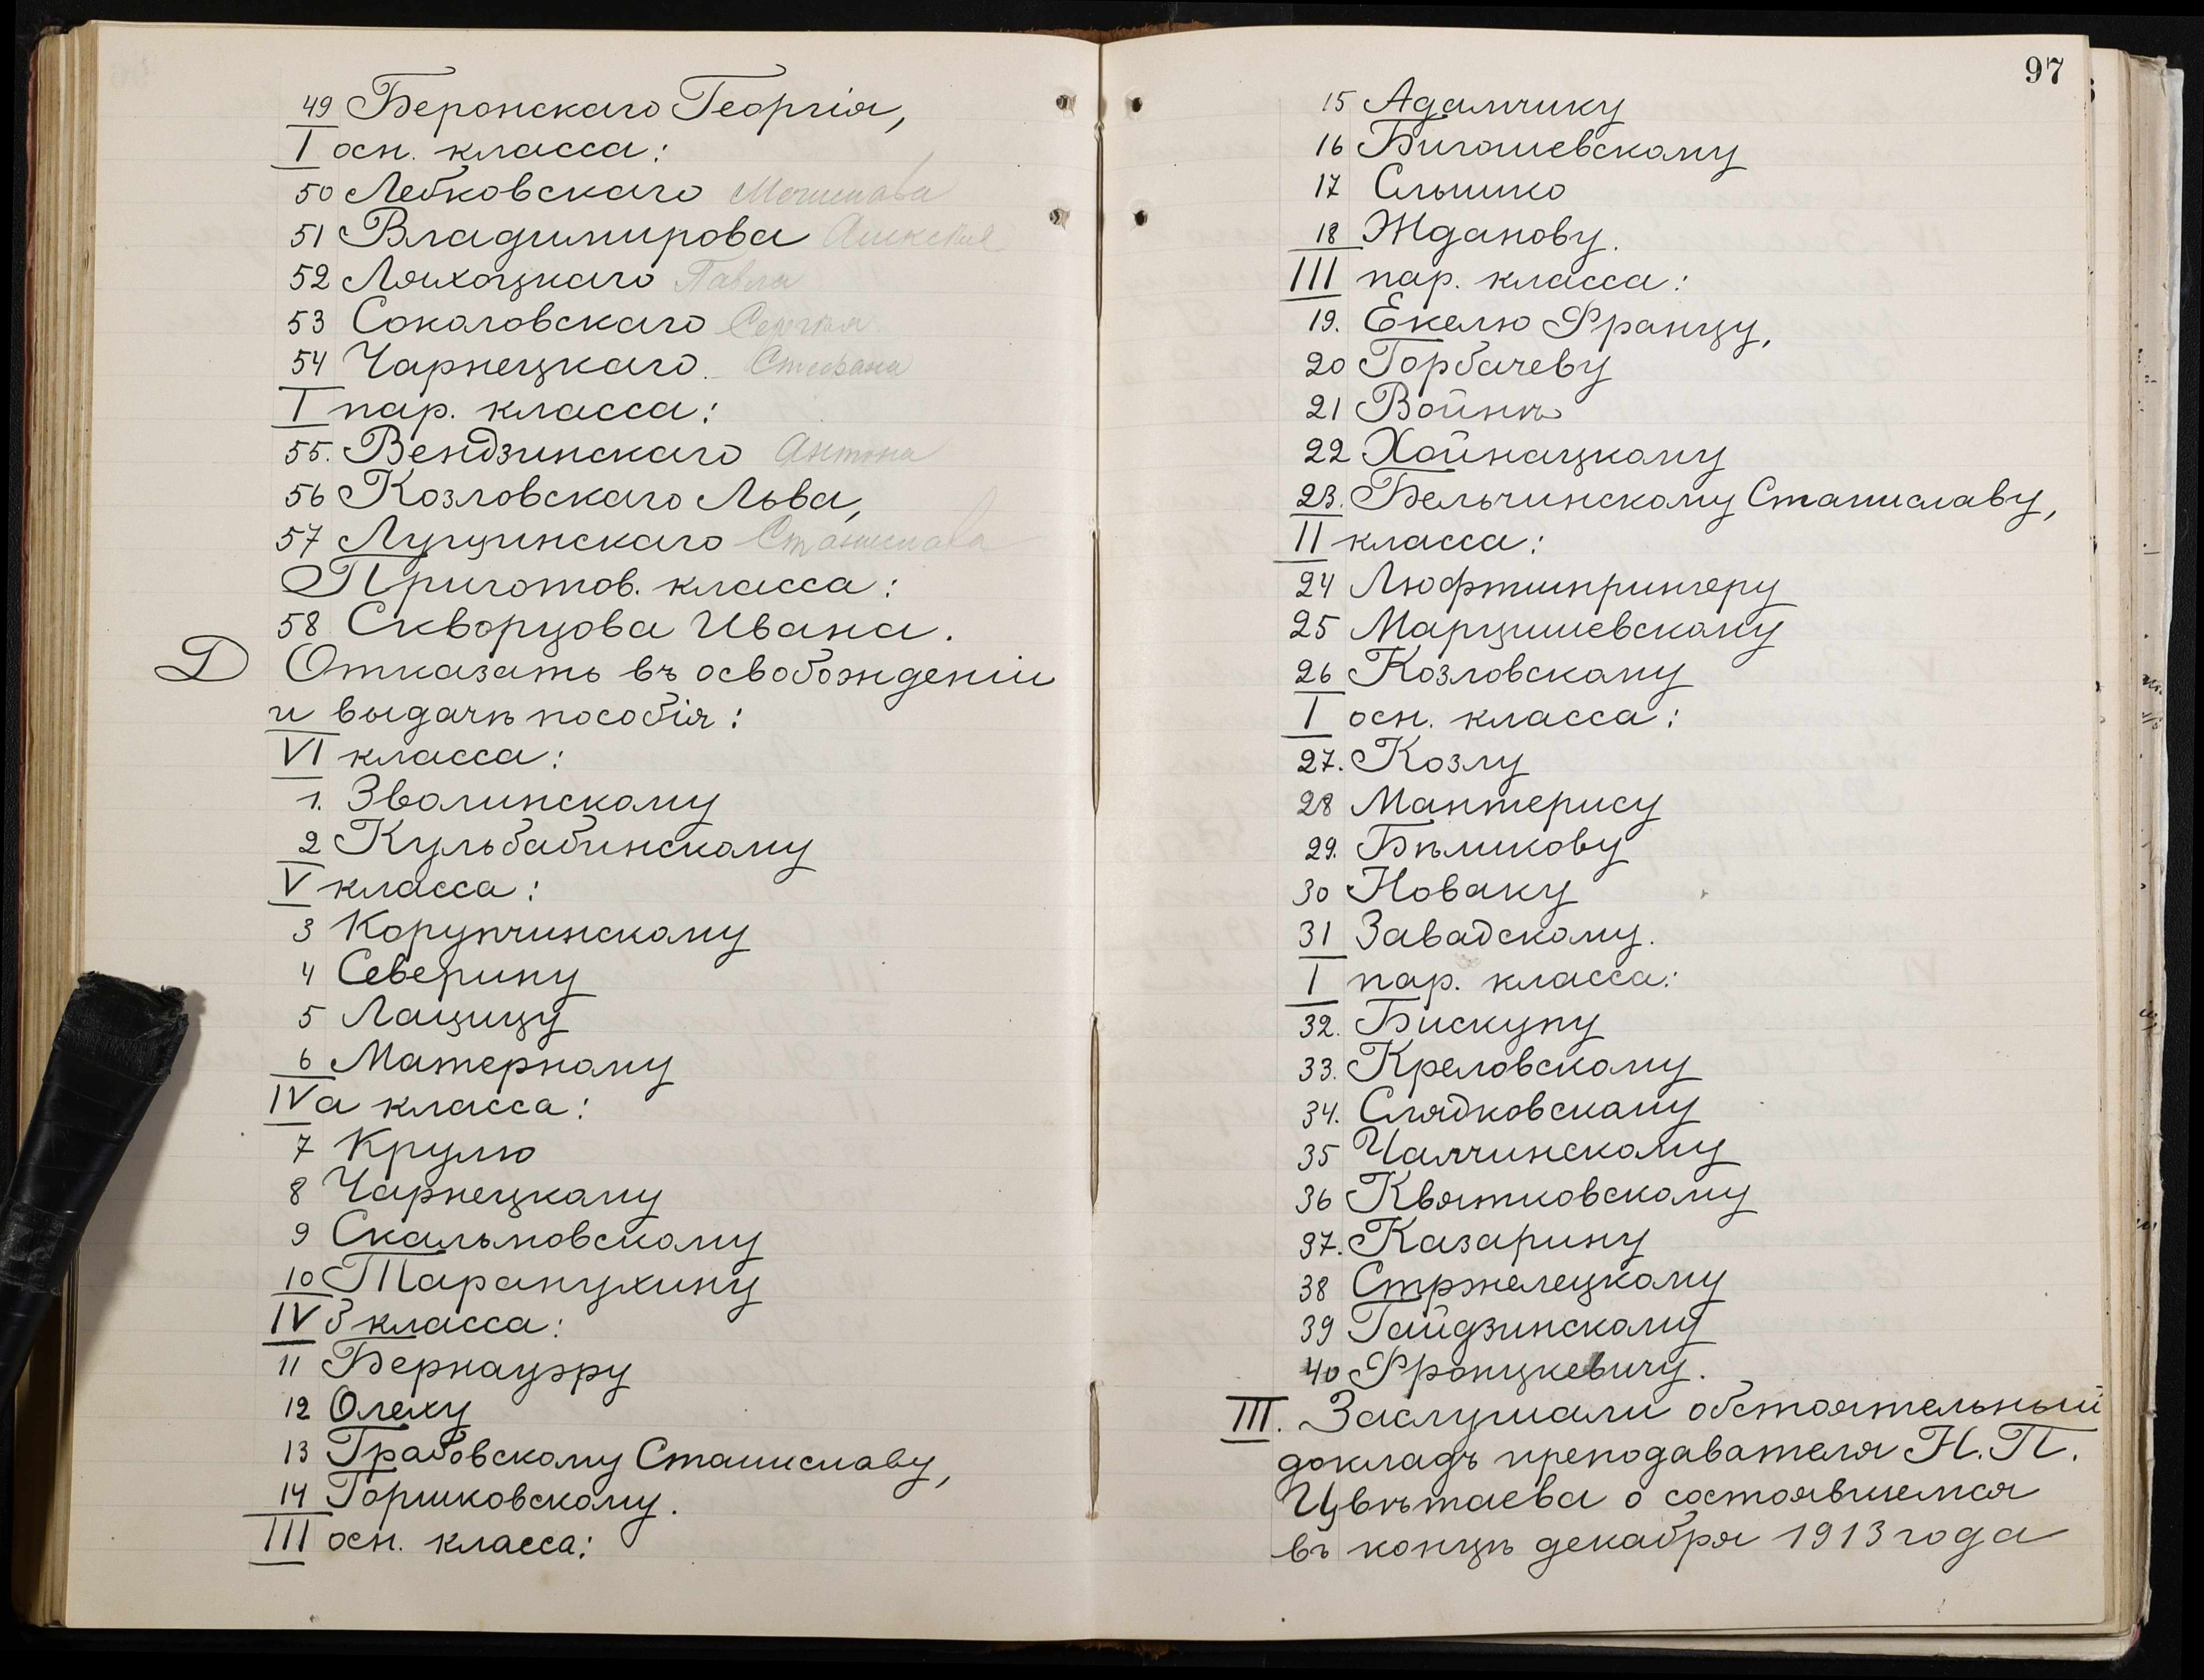 49 Беронскаго Георгія,
I осн. класса:
50 Лебковскаго
51 Владимирова Алексѣя
52 Ляхоцкаго Павла
53 Соколовскаго Сергѣя
54 Чарнецкаго. Стефана
I пар. класса:
55. Вендзинскаго Антона
56 Козловскаго Льва,
57 Лущинскаго Станислава
Приготов. класса:
58 Скворцова Ивана.
D Отказать въ освобожденіи
и выдачѣ пособія:
VI класса:
1. Зволинскому
2 Кульбабинскому
V класса:
3 Корупчинскому
4 Северину
5 Лащицу
6 Матерному
IVа класса:
7 Крулю
8 Чарнецкому
9 Скальмовскому
10 Таранухину
IV б класса:
11 Бернауэру
12 Олеху
13 Грабовскому Станиславу,
14 Горшковскому.
III осн. класса:
97
15 Адамчику
16 Бигошевскому
17 Слышко
18 Жданову.
III пар. класса:
19. Екелю Францу,
20 Горбачеву
21 Войнѣ
22 Хойнацкому
23. Бельчинскому Станиславу,
II класса:
24 Люфтшпрингеру
25 Марцишевскому
26 Козловскому
I осн. класса:
27. Козлу
28 Мантерису
29. Бѣликову
30 Новаку
31 Завадскому.
I пар. класса:
32. Бискупу
33. Креловскому
34. Слядковскому
35 Чапчинскому
36 Квятковскому
37. Казарину
38 Стржелецкому
39 Гайдзинскому
40 Фронцкевичу.
III. Заслушали обстоятельный
докладъ преподавателя Н. П.
Цвѣтаева о состоявшемся
въ концѣ декабря 1913 года